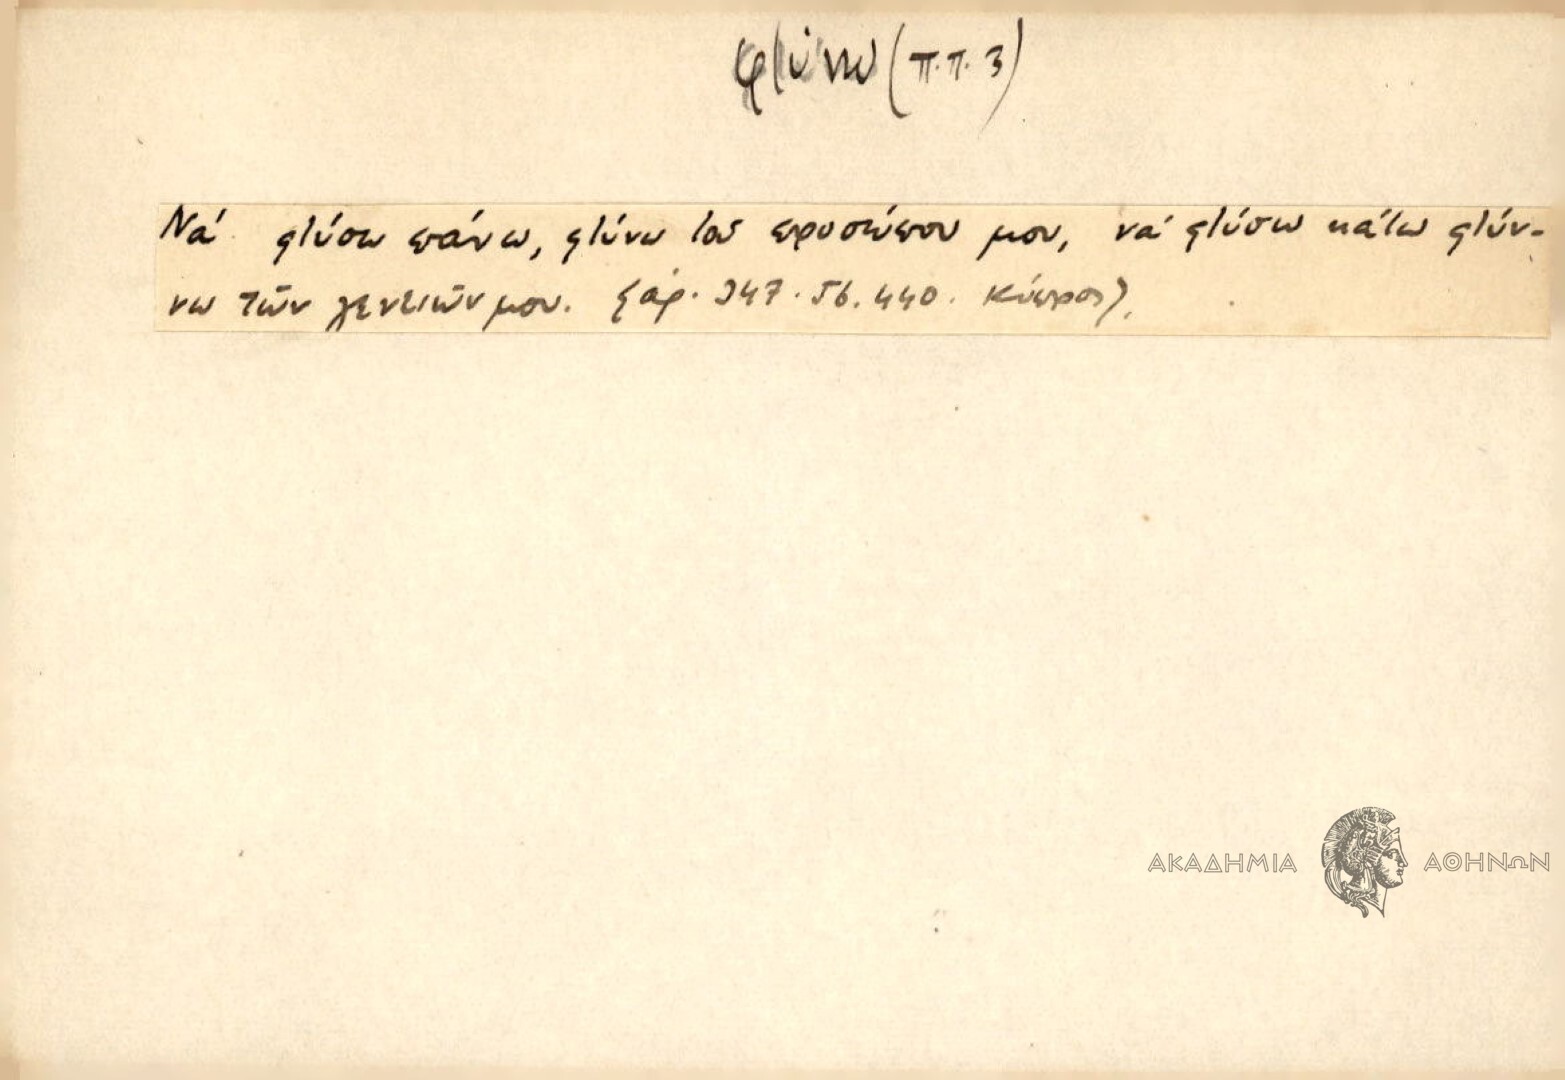 φτύνω (π.π. 3)
Νά φτύσω επάνω, φτύνω τοῦ προσώπου μου, νά φτύσω κάτω φτύν-
νω τῶν γενειῶν μου. (ἀρ. 347. 56. 440. Κύπρος).
ΑΚΑΔΗΜΙΑ ΑΘΗΝΩΝ